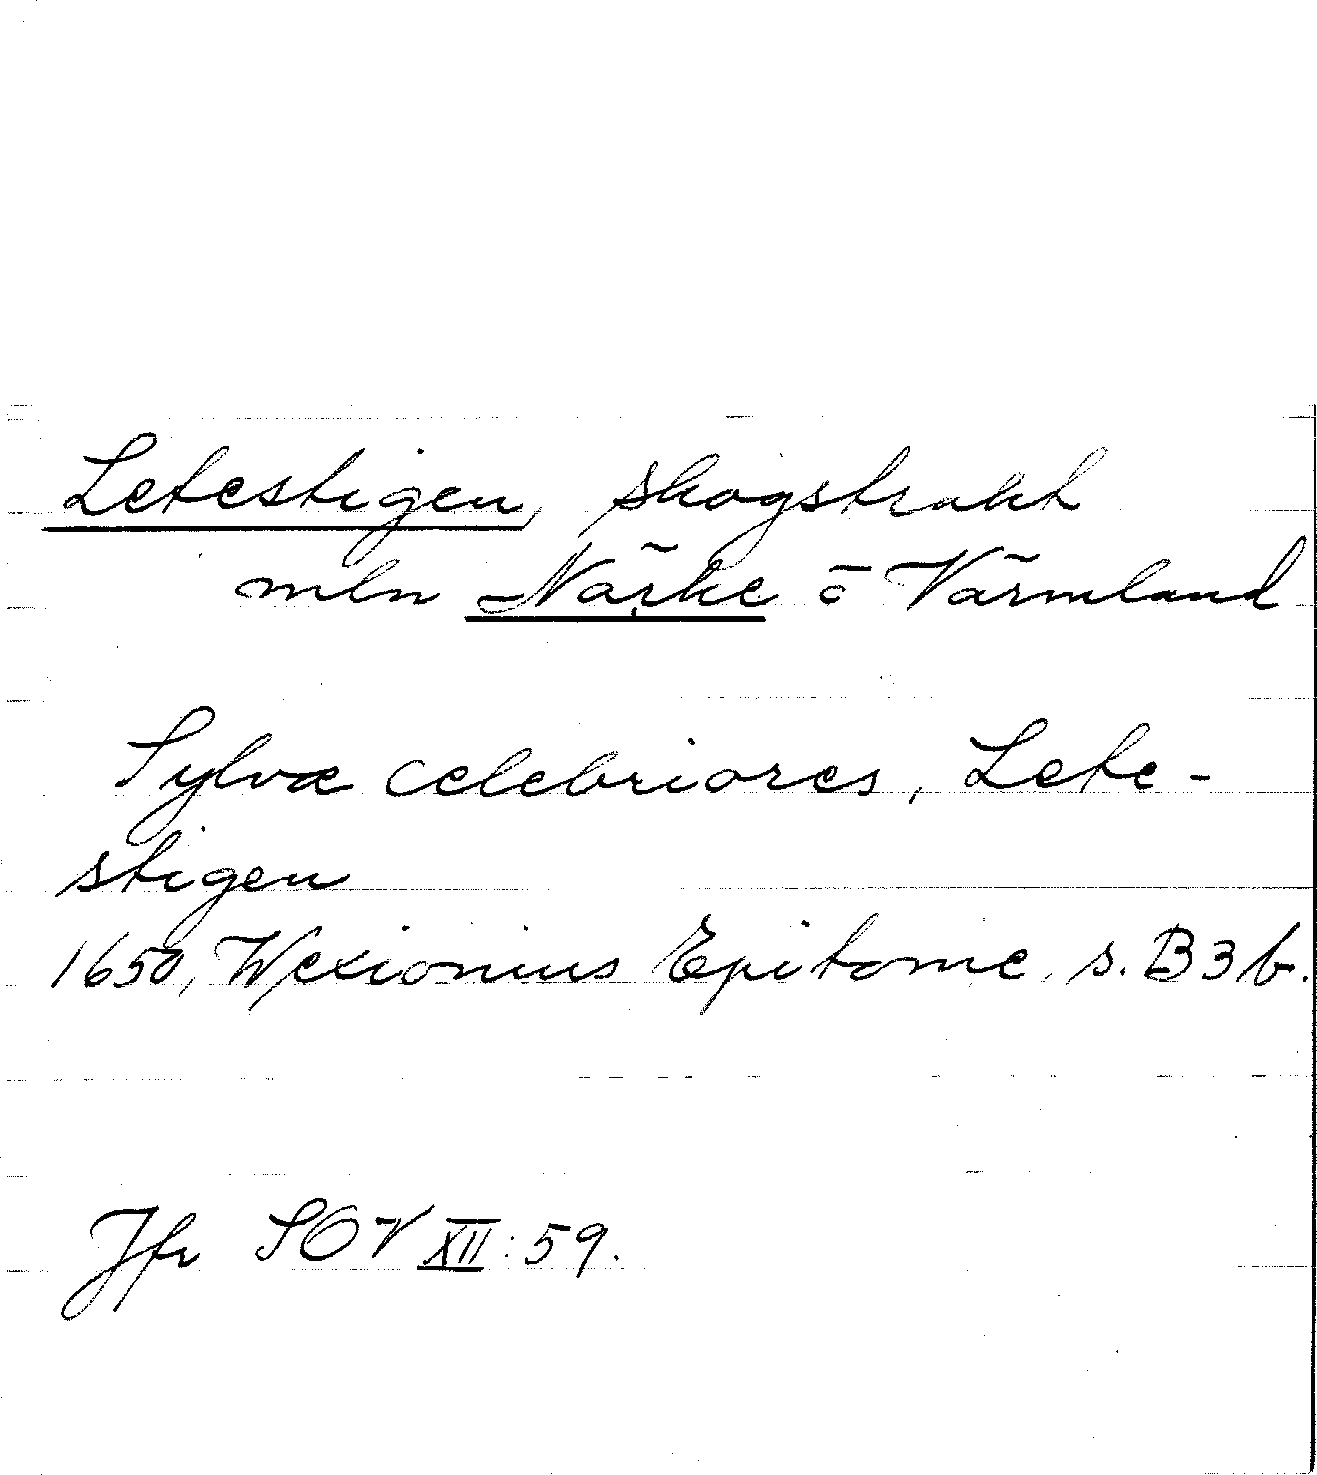 Letestigen, skogstrakt
mln Närke o Värmland
Sylvæ celebriores, Lete-
stigen
1650, Wexionius Epitome s. B3b.
Jfr SOV XII: 59.